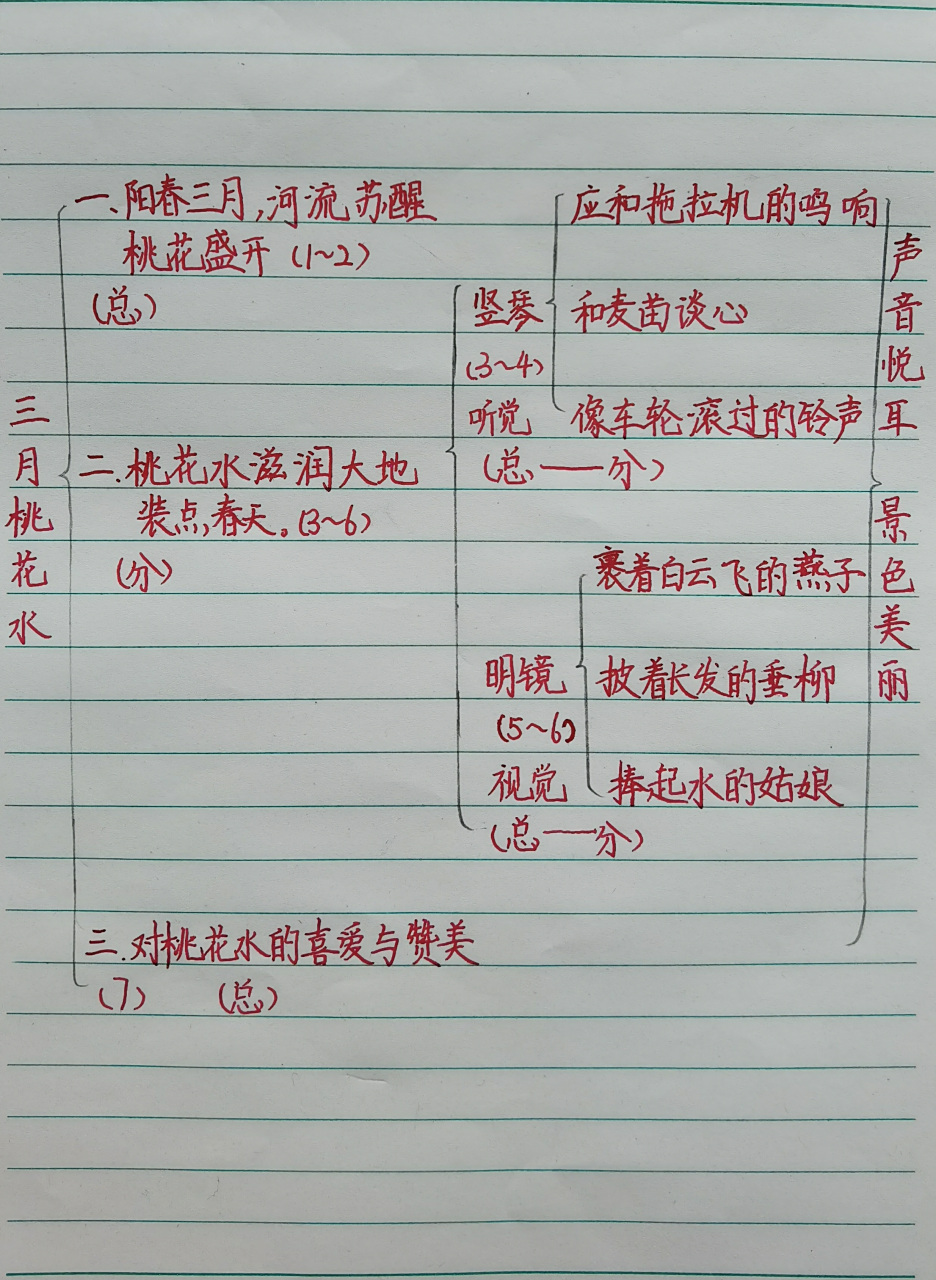 三月桃花水
一.阳春三月,河流苏醒
桃花盛开(1~2)
(总)
二.桃花水滋润大地
装点春天。(3~6)
(分)
三.对桃花水的喜爱与赞美
(7) (总)
竖琴
(3~4)
听觉
(总——分)
应和拖拉机的鸣响
和麦苗谈心
像车轮滚过的铃声
明镜
(5~6)
视觉
(总——分)
裹着白云飞的燕子
披着长发的垂柳
捧起水的姑娘
声音悦耳
景色美丽